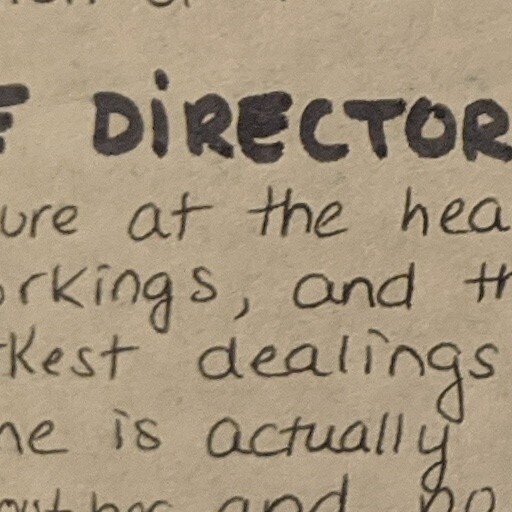 DiRECTOR
ure at the hea
rkings, and th
kest dealings
ne is actually
and no